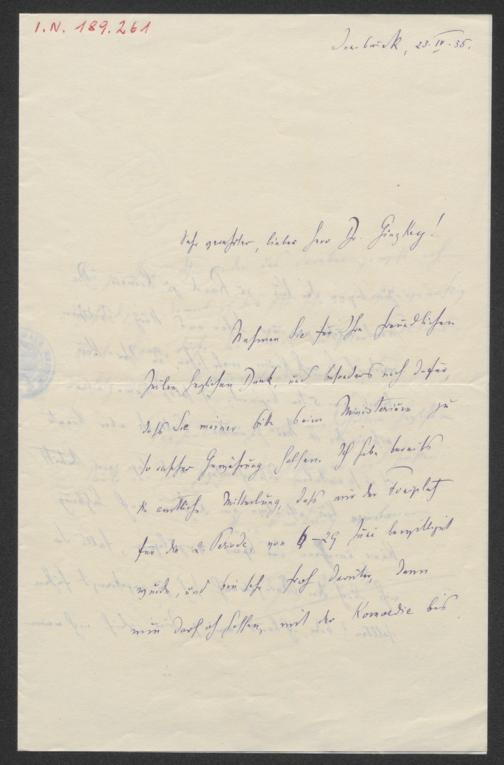 I.N. 189.261
Innsbruck, 23. IV. 36.
Sehr geehrter, lieber Herr Dr. Ginzkey!
Nehmen Sie für Ihre freundlichen
Zeilen herzlichen Dank, und besonders noch dafür,
daß Sie meiner Bitte beim Ministerium zu
so rascher Gewährung halfen. Ich habe bereits
die amtliche Mitteilung, daß mir der Freiplatz
für die 2. Periode von 6–29 Juni bewilligt
wurde, und bin sehr froh darüber, denn
nun darf ich hoffen, mit der Komoedie bis